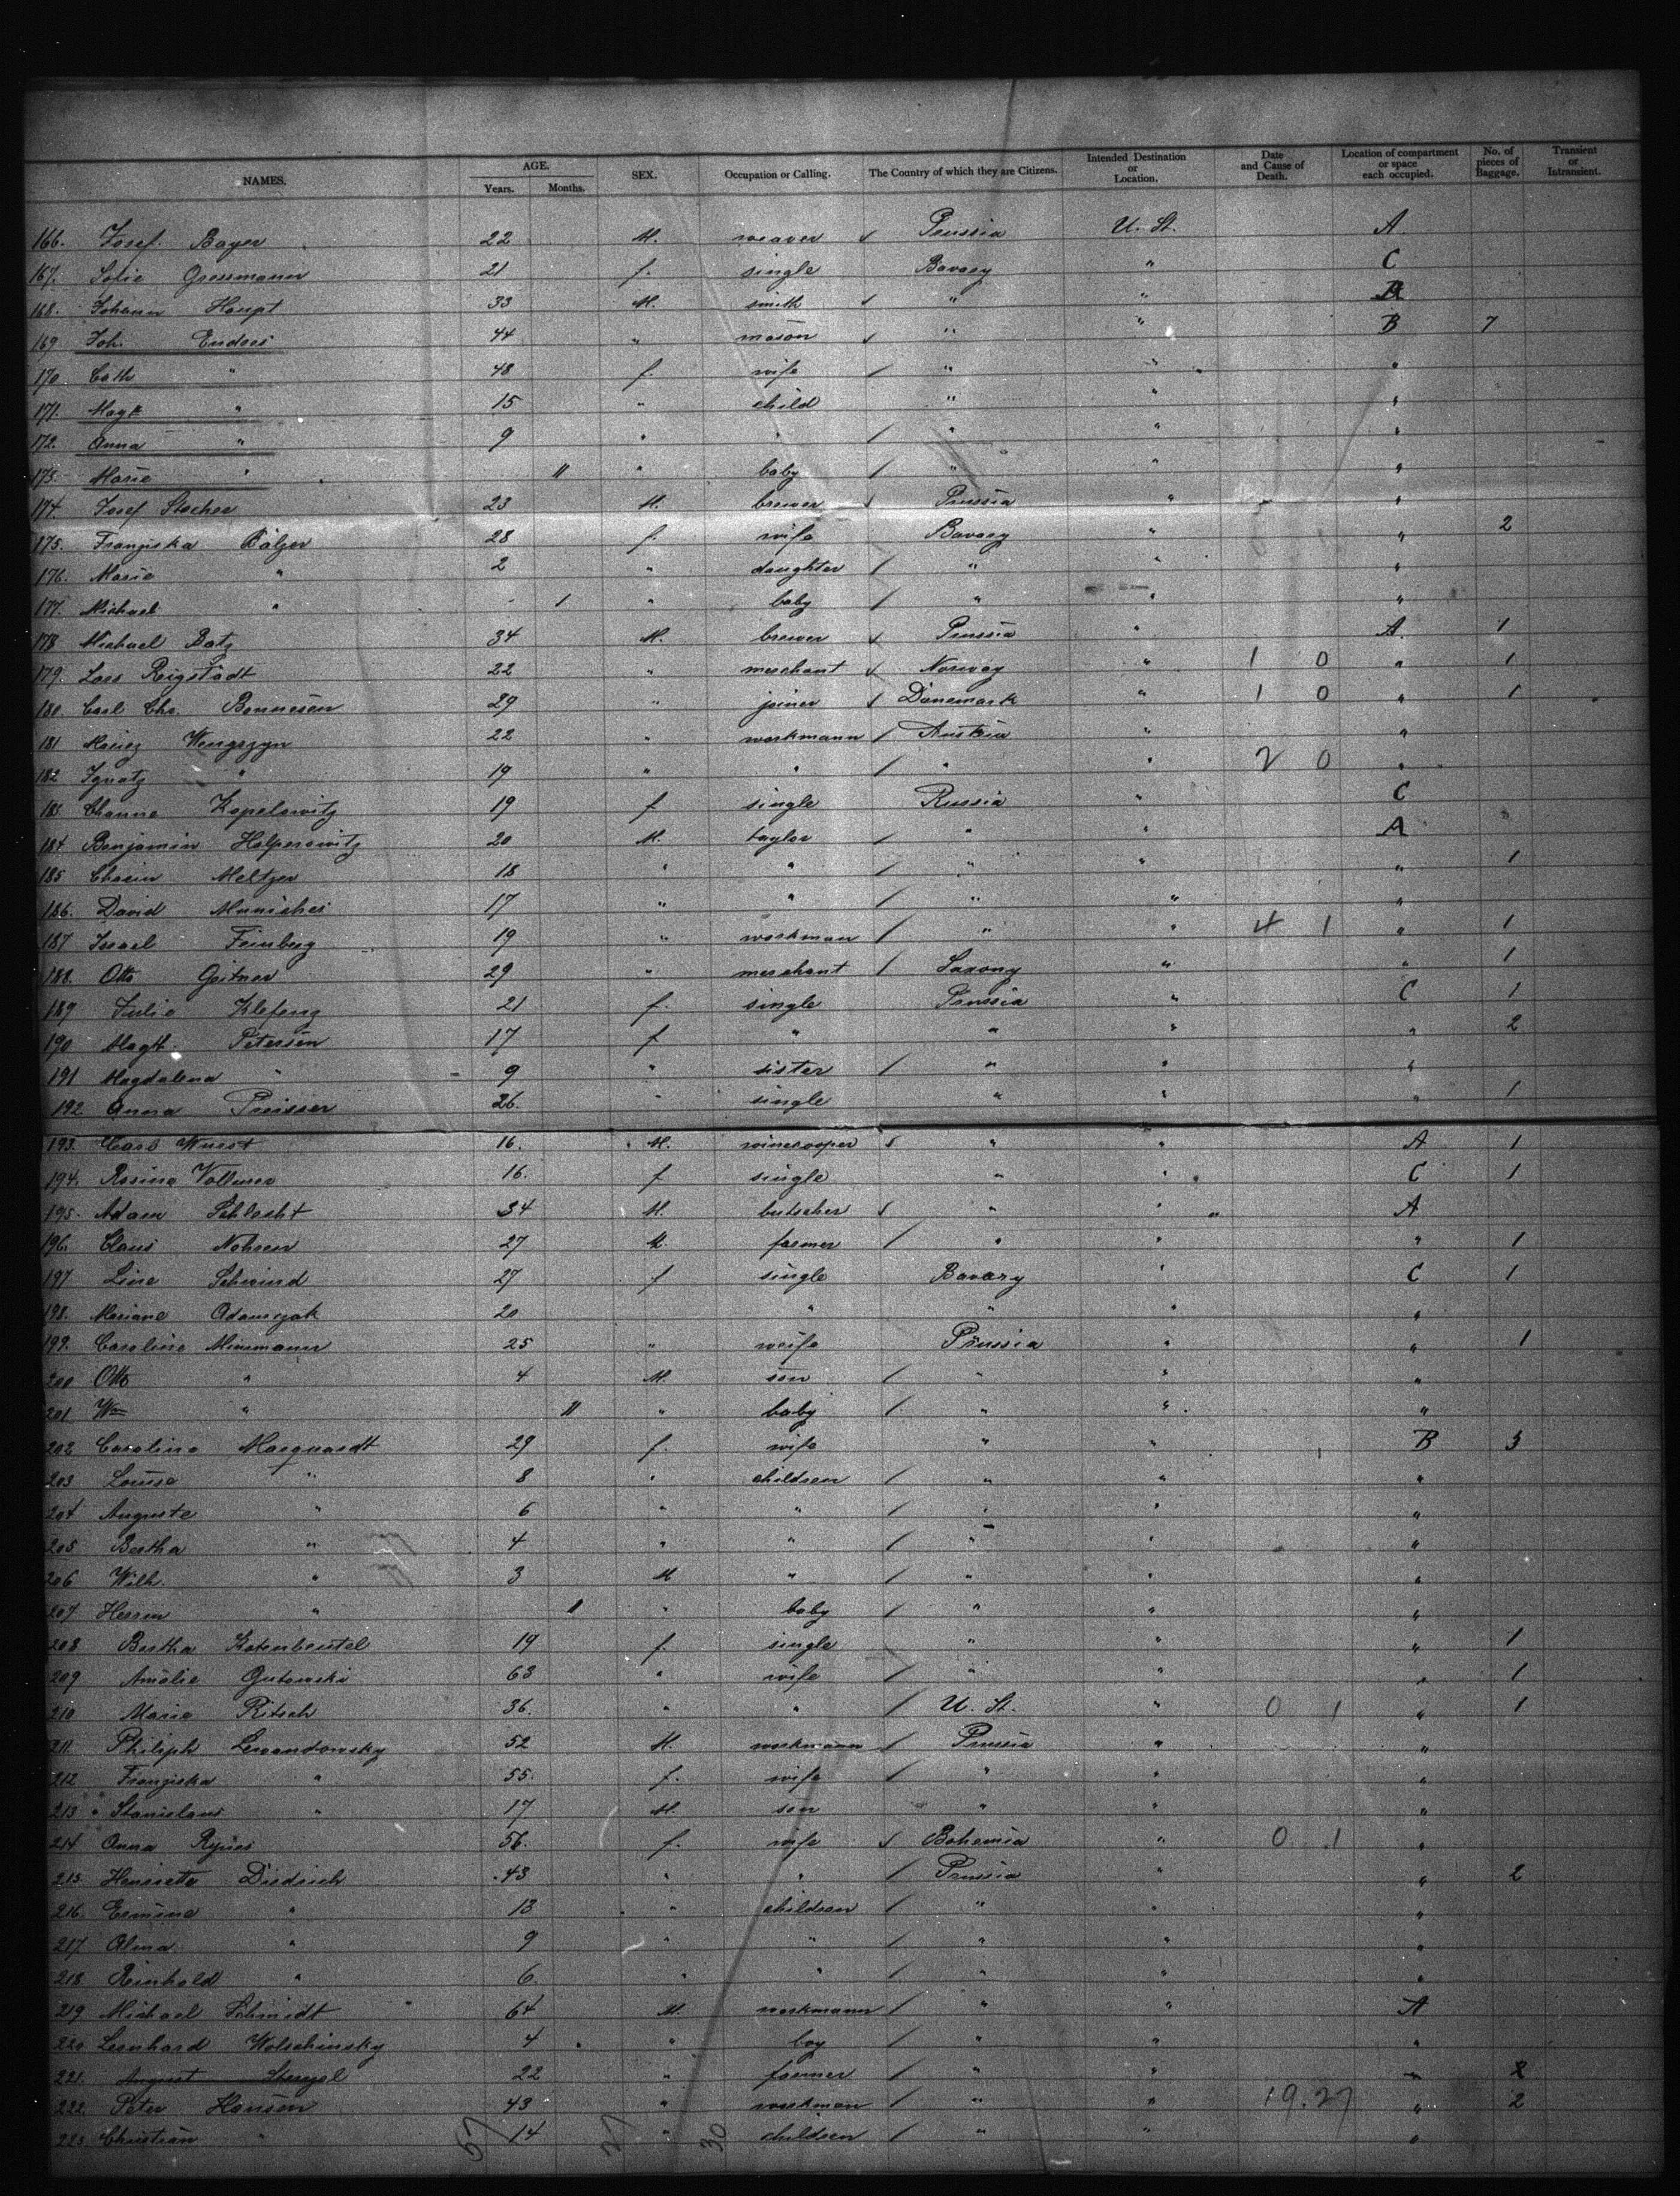 NAMES. AGE. Years. Months. SEX. Occupation or Calling. The Country of which they are Citizens. Intended Destination or Location. Date and Cause of Death. Location of compartment or space each occupied. No. of pieces of Baggage. Transient or Intransient.
166. Josef Bayer 22 M. weaver Prussia U. St. A.
167. Sofie Gressmann 21 f. single Bavary " C
168. Johann Haupt 33 M. smith " "
169 Joh. Endres 44 " mason " " B 7
170 Cath " 48 f. wife " " "
171. Magt " 15 " child " " "
172. Anna " 9 " " " " "
173. Marie " 11 " baby " " "
174. Josef Stocher 23 M. brewer Prussia " "
175. Franziska Balzer 28 f. wife Bavary " " 2
176. Marie " 2 " daughter " " "
177. Michael " - 1 " baby " " "
178 Michael Batz 34 M. brewer Prussia " A. 1
179. Lars Reigstadt 22 " merchant Norway " 1 0 " 1
180. Carl Chr. Bonnesen 29 " joiner Danemark " 1 0 " 1
181 Maciez Wengrzyn 22 " workmann Austria " "
182 Ignatz " 19 " " " " 2 0 "
183. Channe Kopelowitz 19 f single Russia " C
184 Benjamin Halperowitz 20 M. taylor " " A
185 Chaim Meltzer 18 " " " " " 1
186. David Munisches 17 " " " " "
187 Israel Feinberg 19 " workman " " 4 1 " 1
188. Otto Geitner 29 " merchant Saxony " " 1
189 Julie Klefeng 21 f. single Prussia " C 1
190 Magt. Petersen 17 f " " " " 2
191 Magdalena " 9 " sister " " "
192 Anna Preisser 26. " single " " " 1
193. Carl Wurst 16. M. winecooper " " A 1
194. Rosine Vollmer 16. f single " " C 1
195. Adam Schlecht 34 M. butscher " " A
196. Claus Nohsen 27 M. farmer " " " 1
197 Line Schwind 27 f single Bavary " C 1
198. Mariane Adamczak 20 " " " "
199. Caroline Minemann 25 " weife Prussia " " 1
200 Otto " 4 M. son " " "
201 Wm " 11 " baby " " "
202 Caroline Marquardt 29 f. wife " " B 3
203 Louise " 8 " children " " "
204 Auguste " 6 " " " " "
205 Bertha " 4 " " " " "
206 Wilh. " 3 M " " " "
207 Herrm " 1 " baby " " "
208 Bertha Katenbeutel 19 f. single " " " 1
209 Amalie Gutowski 63 " wife " " " 1
210 Marie Ritsch 36. " " U. St. " 0 1 " 1
211. Philiph Lewandowsky 52 M. workmann Prussia " "
212 Franziska " 55. f. wife " " "
213 Stanislaus " 17 M. son " " "
214 Anna Rysies 56. f. wife Bohemia " 0 1 "
215. Henriette Diedrich 43 " " Prussia " " 2
216. Ermine " 13 " children " " "
217 Alma " 9 " " " " "
218 Reinhold " 6. " " " " "
219 Michael Schmidt 64 M. workmann " " A
220 Leonhard Wolschinsky 4 " boy " " "
221. August Stengel 22 " farmer " " " 2
222 Peter Hansen 43 " workman " " 19.27 " 2
223 Christian " 14 " children " " "
57 27 30